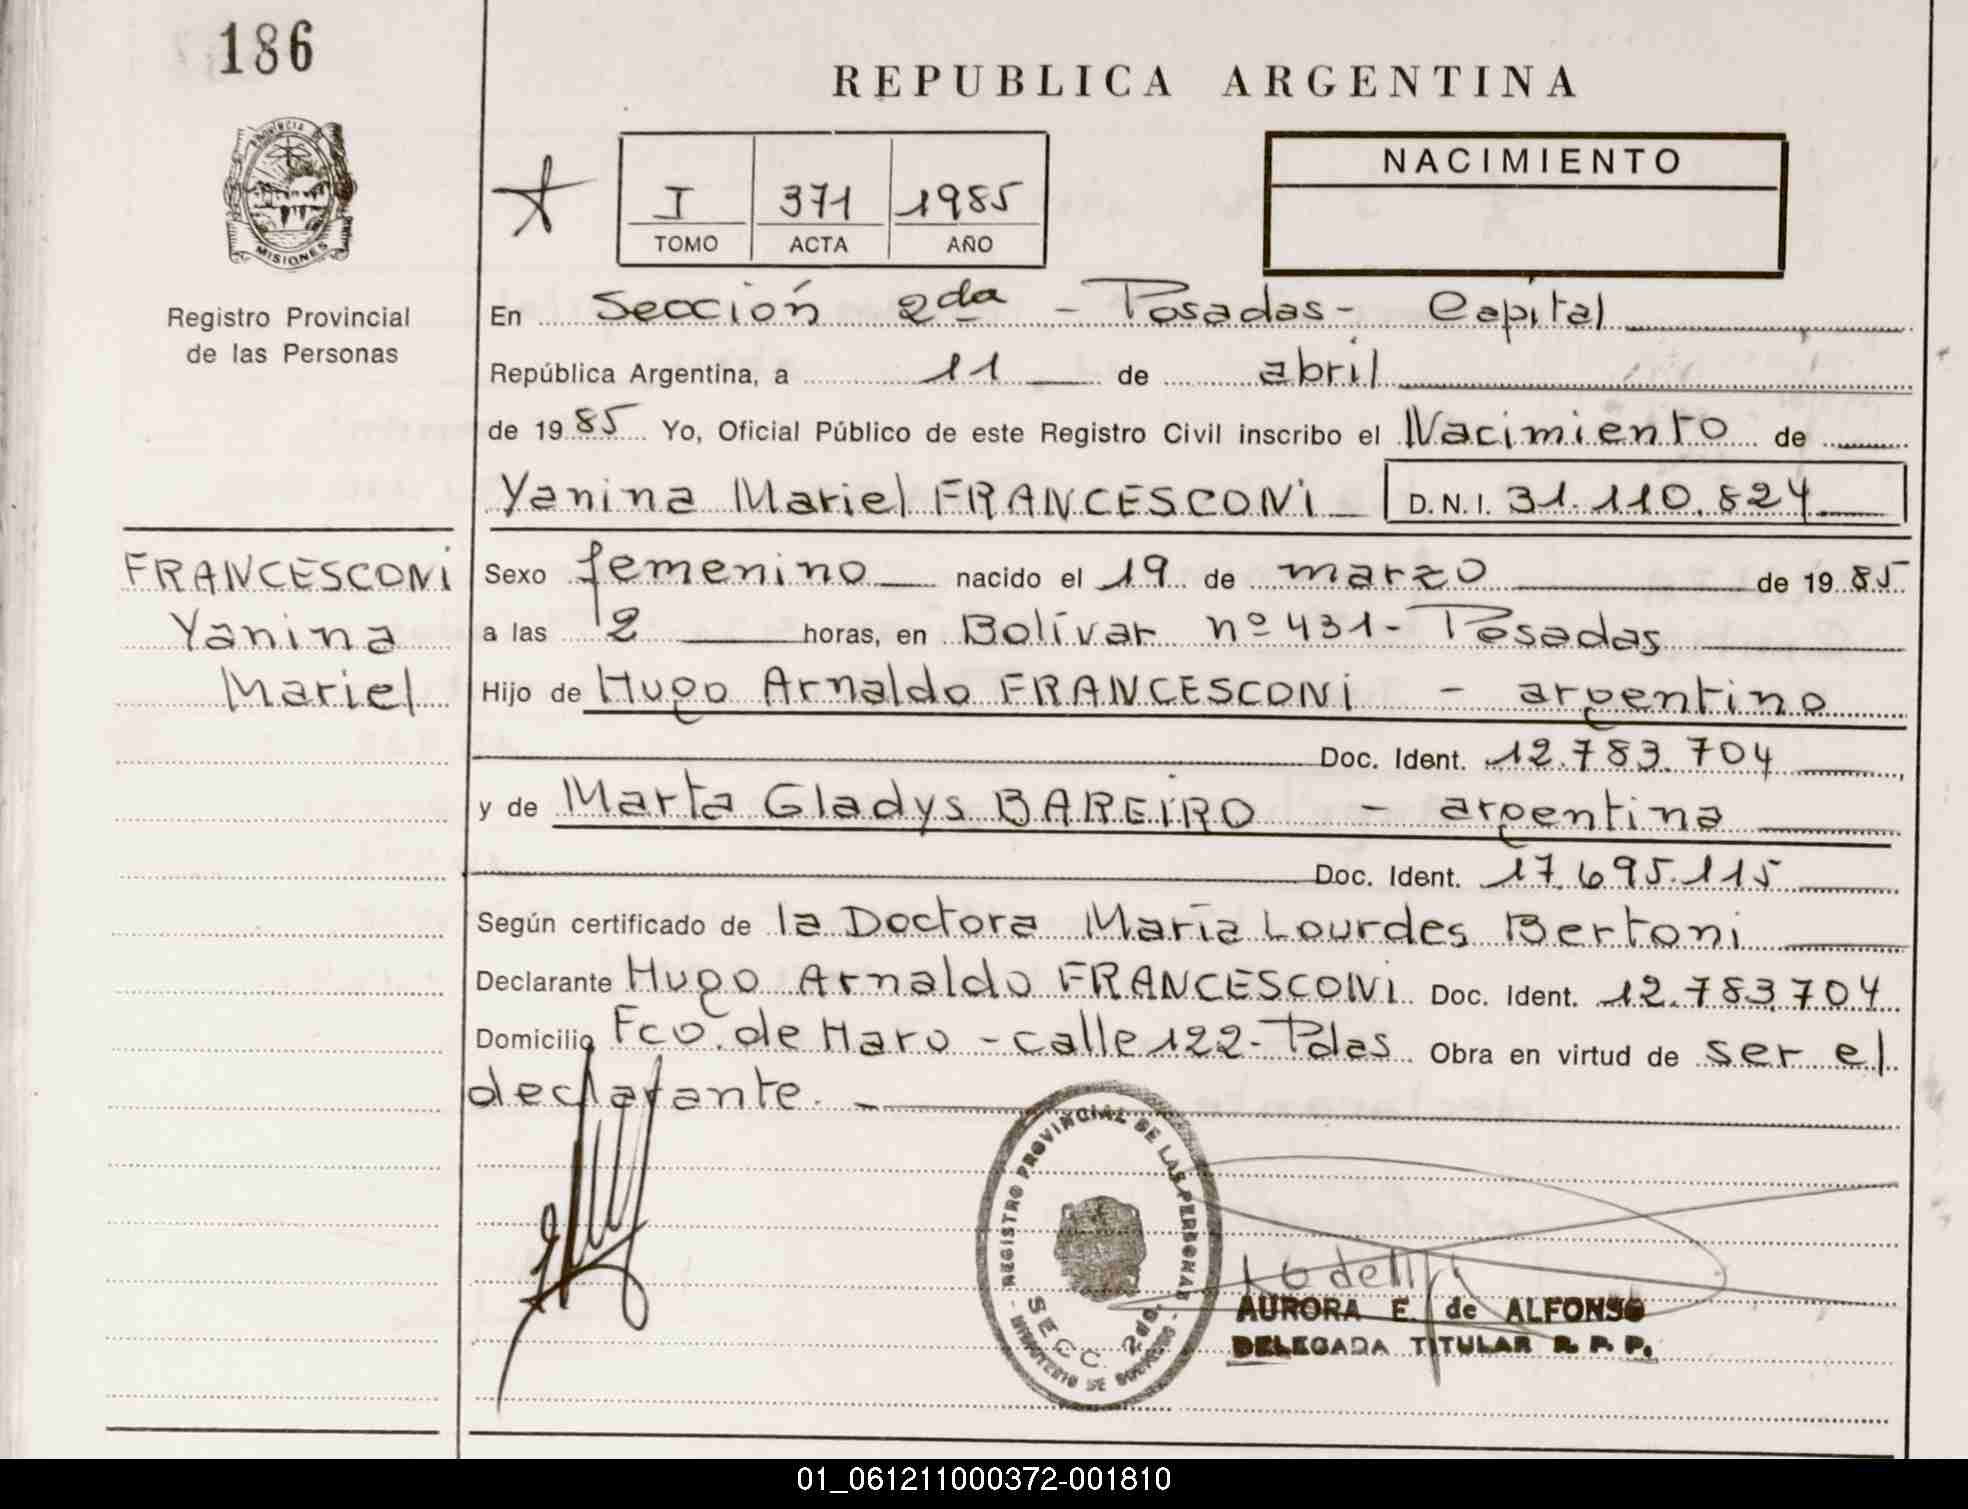 186
REPUBLICA ARGENTINA
PROVINCIA DE
MISIONES
I 371 1985
TOMO ACTA AÑO
NACIMIENTO
Registro Provincial
de las Personas
En Sección 2da - Posadas - Capital
República Argentina, a 11 de abril
de 1985 Yo, Oficial Público de este Registro Civil inscribo el Nacimiento de
Yanina Mariel FRANCESCONI D.N.I. 31.110.824
FRANCESCONI
Yanina
Mariel
Sexo femenino nacido el 19 de marzo de 1985
a las 2 horas, en Bolívar nº 431 - Posadas
Hijo de Hugo Arnaldo FRANCESCONI - argentino
Doc. Ident. 12.783.704
y de Marta Gladys BAREIRO - argentina
Doc. Ident. 17.695.115
Según certificado de la Doctora María Lourdes Bertoni
Declarante Hugo Arnaldo FRANCESCONI Doc. Ident. 12.783.704
Domicilio Fco. de Haro - calle 122 - Pdas Obra en virtud de ser el
declarante.
REGISTRO PROVINCIAL DE LAS PERSONAS
SECC. 2da.
MINISTERIO DE GOBIERNO
AURORA E. de ALFONSO
DELEGADA TITULAR R. P. P.
01_061211000372-001810